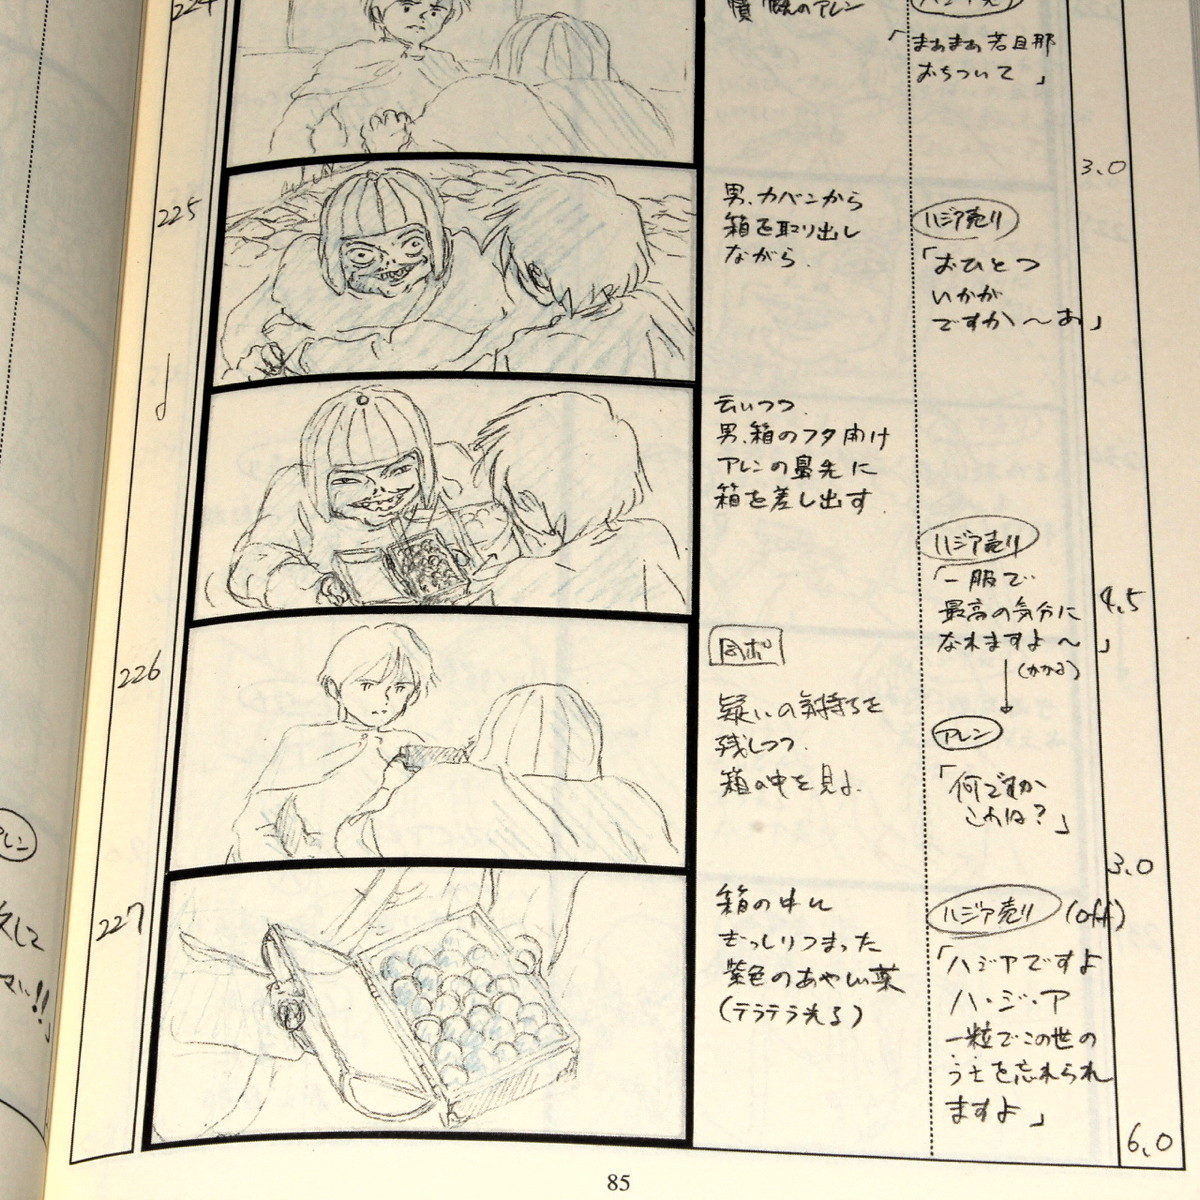 224
憤慨のアレン
「まぁまぁ若旦那
おちついて」
3.0
225
男、カバンから
箱を取り出し
ながら、
ハジア売り
「おひとつ
いかが
ですか〜あ」
云いつつ、
男、箱のフタ開け
アレンの鼻先に
箱を差し出す
ハジア売り
「一服で
最高の気分に
なれますよ〜」
(かかる)
4.5
226
同ポ
疑いの気持ちを
残しつつ
箱の中を見る
アレン
「何ですか
これは?」
3.0
227
箱の中に
ぎっしりつまった
紫色のあやしい薬
(テラテラ光る)
ハジア売り (off)
「ハジアですよ
ハ・ジ・ア
一粒でこの世の
うさを忘れられ
ますよ」
6.0
アレン
85